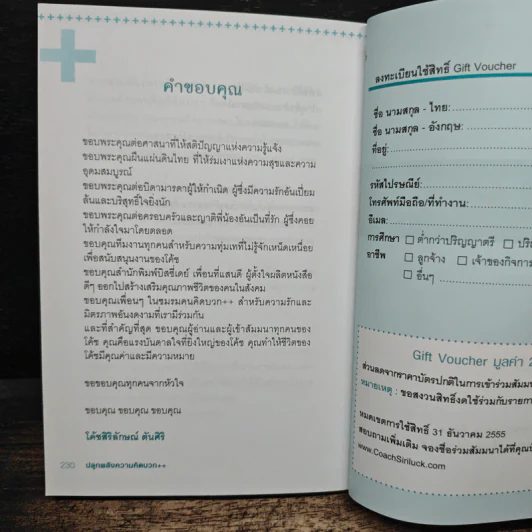 คำขอบคุณ
ขอบพระคุณต่อศาสนาที่ให้สติปัญญาแห่งความรู้แจ้ง
ขอบพระคุณผืนแผ่นดินไทย ที่ให้ร่มเงาแห่งความสุขและความ
อุดมสมบูรณ์
ขอบพระคุณต่อบิดามารดาผู้ให้กำเนิด ผู้ซึ่งมีความรักอันเปี่ยม
ล้นและบริสุทธิ์ใจยิ่งนัก
ขอบพระคุณต่อครอบครัวและญาติพี่น้องอันเป็นที่รัก ผู้ซึ่งคอย
ให้กำลังใจมาโดยตลอด
ขอบคุณทีมงานทุกคนสำหรับความทุ่มเทที่ไม่รู้จักเหน็ดเหนื่อย
เพื่อสนับสนุนงานของโค้ช
ขอบคุณสำนักพิมพ์บิสซี่เดย์ เพื่อนที่แสนดี ผู้ตั้งใจผลิตหนังสือ
ดีๆ ออกไปสร้างเสริมคุณภาพชีวิตของคนในสังคม
ขอบคุณเพื่อนๆ ในชมรมคนคิดบวก++ สำหรับความรักและ
มิตรภาพอันงดงามที่เรามีร่วมกัน
และที่สำคัญที่สุด ขอบคุณผู้อ่านและผู้เข้าสัมมนาทุกคนของ
โค้ช คุณคือแรงบันดาลใจที่ยิ่งใหญ่ของโค้ช คุณทำให้ชีวิตของ
โค้ชมีคุณค่าและมีความหมาย
ขอขอบคุณทุกคนจากหัวใจ
ขอบคุณ ขอบคุณ ขอบคุณ
โค้ชสิริลักษณ์ ตันศิริ
230 ปลุกพลังความคิดบวก++
ลงทะเบียนใช้สิทธิ์ Gift Voucher
ชื่อ นามสกุล - ไทย:
ชื่อ นามสกุล - อังกฤษ:
ที่อยู่:
รหัสไปรษณีย์:
โทรศัพท์มือถือ/ที่ทำงาน:
อีเมล:
การศึกษา ☐ ต่ำกว่าปริญญาตรี ☐
อาชีพ ☐ ลูกจ้าง ☐ เจ้าของกิจการ
☐ อื่นๆ
Gift Voucher มูลค่า
ส่วนลดจากราคาบัตรปกติในการเข้าร่วมสัมมนา
หมายเหตุ : ขอสงวนสิทธิ์งดใช้ร่วมกับรายการ
หมดเขตการใช้สิทธิ์ 31 ธันวาคม 2555
สอบถามเพิ่มเติม จองชื่อร่วมสัมมนาได้ที่คุณ
www.CoachSiriluck.com